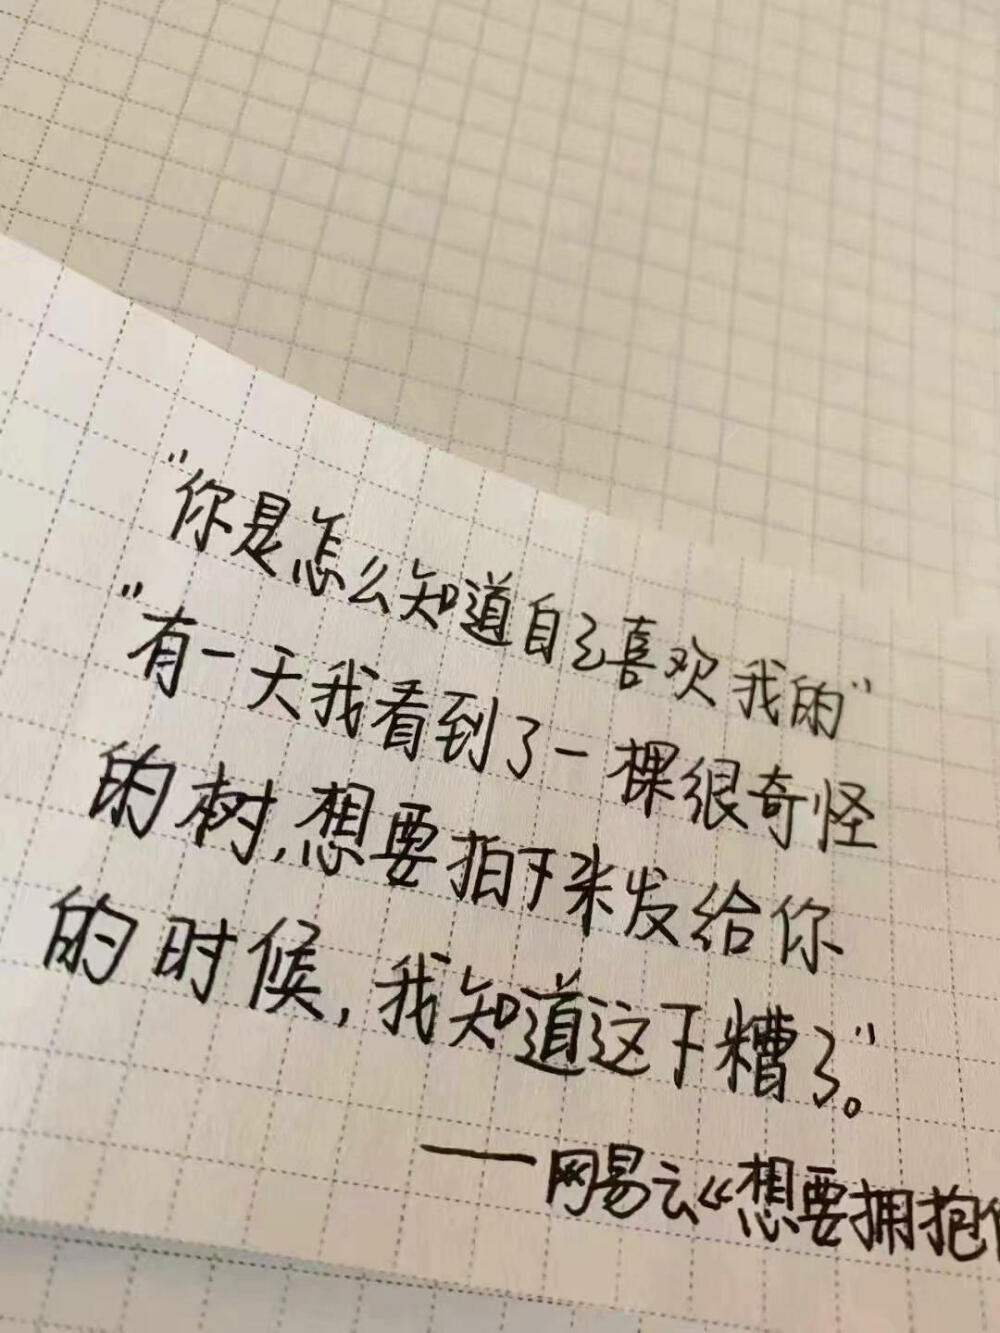 "你是怎么知道自己喜欢我的"
"有一天我看到了一棵很奇怪
的树,想要拍下来发给你
的时候,我知道这下糟了。"
——网易云《想要拥抱